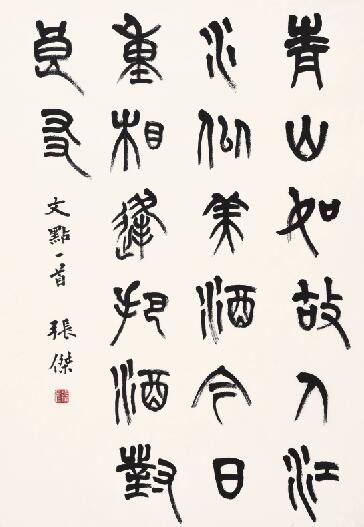 青山如故人江
水似美酒今日
重相逢把酒對
良友
文點一首 張傑